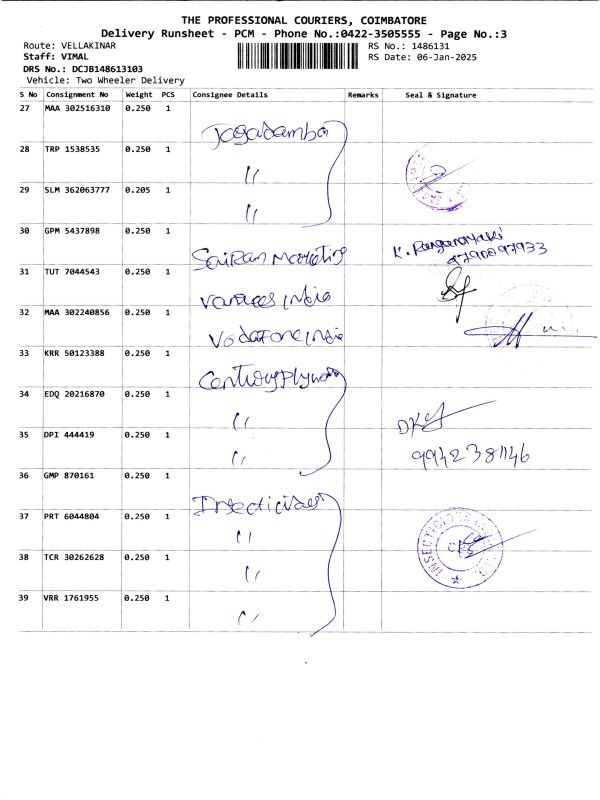 THE PROFESSIONAL COURIERS, COIMBATORE
Delivery Runsheet - PCM - Phone No.:0422-3505555 - Page No.:3
Route: VELLAKINAR RS No.: 1486131
Staff: VIMAL RS Date: 06-Jan-2025
DRS No.: DCJB148613103
Vehicle: Two Wheeler Delivery
S No Consignment No Weight PCS Consignee Details Remarks Seal & Signature
27 MAA 302516310 0.250 1 Jagadamba
28 TRP 1538535 0.250 1 "
29 SLM 362063777 0.205 1 "
30 GPM 5437898 0.250 1 Sairam Marketing K.
9790097933
31 TUT 7044543 0.250 1 India
32 MAA 302240856 0.250 1 Vodafone India
33 KRR 50123388 0.250 1 Centuryplywood
34 EDQ 20216870 0.250 1 "
35 DPI 444419 0.250 1 " 9942381146
36 GMP 870161 0.250 1 Insecticides
37 PRT 6044804 0.250 1 " INSECTICIDES
38 TCR 30262628 0.250 1 "
39 VRR 1761955 0.250 1 "